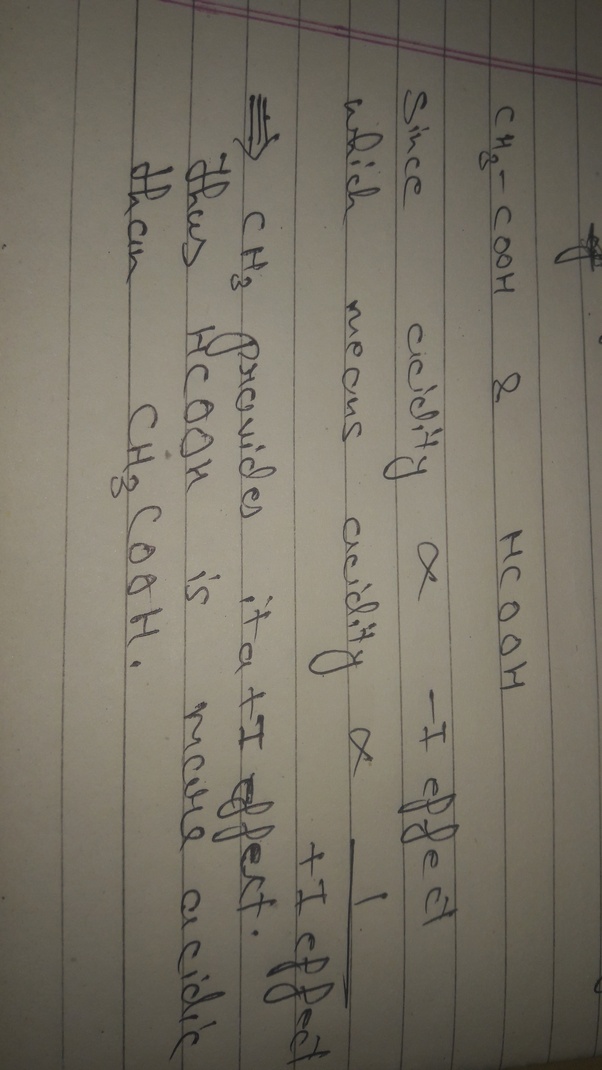 CH3-COOH & HCOOH
Since acidity ∝ -I effect
which means acidity ∝ 1
+I effect
⇒ CH3 provides it a +I effect.
thus HCOOH is more acidic
than CH3COOH.